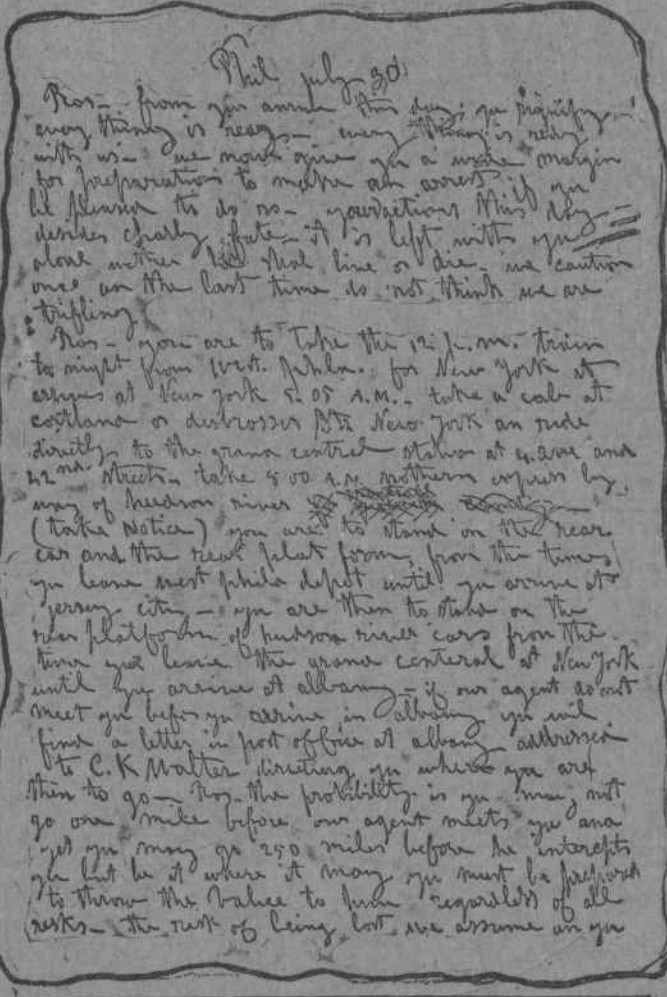 Phil july 30
Ros- from you answer this day. you signify
every thing is redy- every thing is redy
with us- we now give you a wide margin
for preparation to make an arrest if you
be pleased to do so- yowr actions this day
desides charly fate- it is left with you
alone wether he shal live or die- we caution
once an the last time do not think we are
trifling
Ros- you are to Take the 12 p.m. train
to night from West. phila. for New York it
arives at New york 5.05 A.M.- take a cab at
cortland or desbrosses Sts New York an ride
directly to the grand centrel station at 4.ave and
42nd. Streets- take 8 00 A.M. nothern express by
way of hudson river
(take Notice) you are to stand on the rear
car and the rear plat form, from the time
you leave west phila depot until you arive at
jersy city- you are then to stand on the
rear platform of hudson river cars from the
time you leave the grand centeral at New York
until you arive at albany- if our agent do not
meet you befor you arrive in albany you wil
find a letter in post offive at albany addressed
to C. K Walter directing you where you are
then to go- Ros- the probility is you may not
go one mile before our agent meets you and
yet you may go 250 miles before he intercepts
you but be it where it may you must be prepared
to throw the valice to him regardless of all
risks- the risk of being lost we assume an you